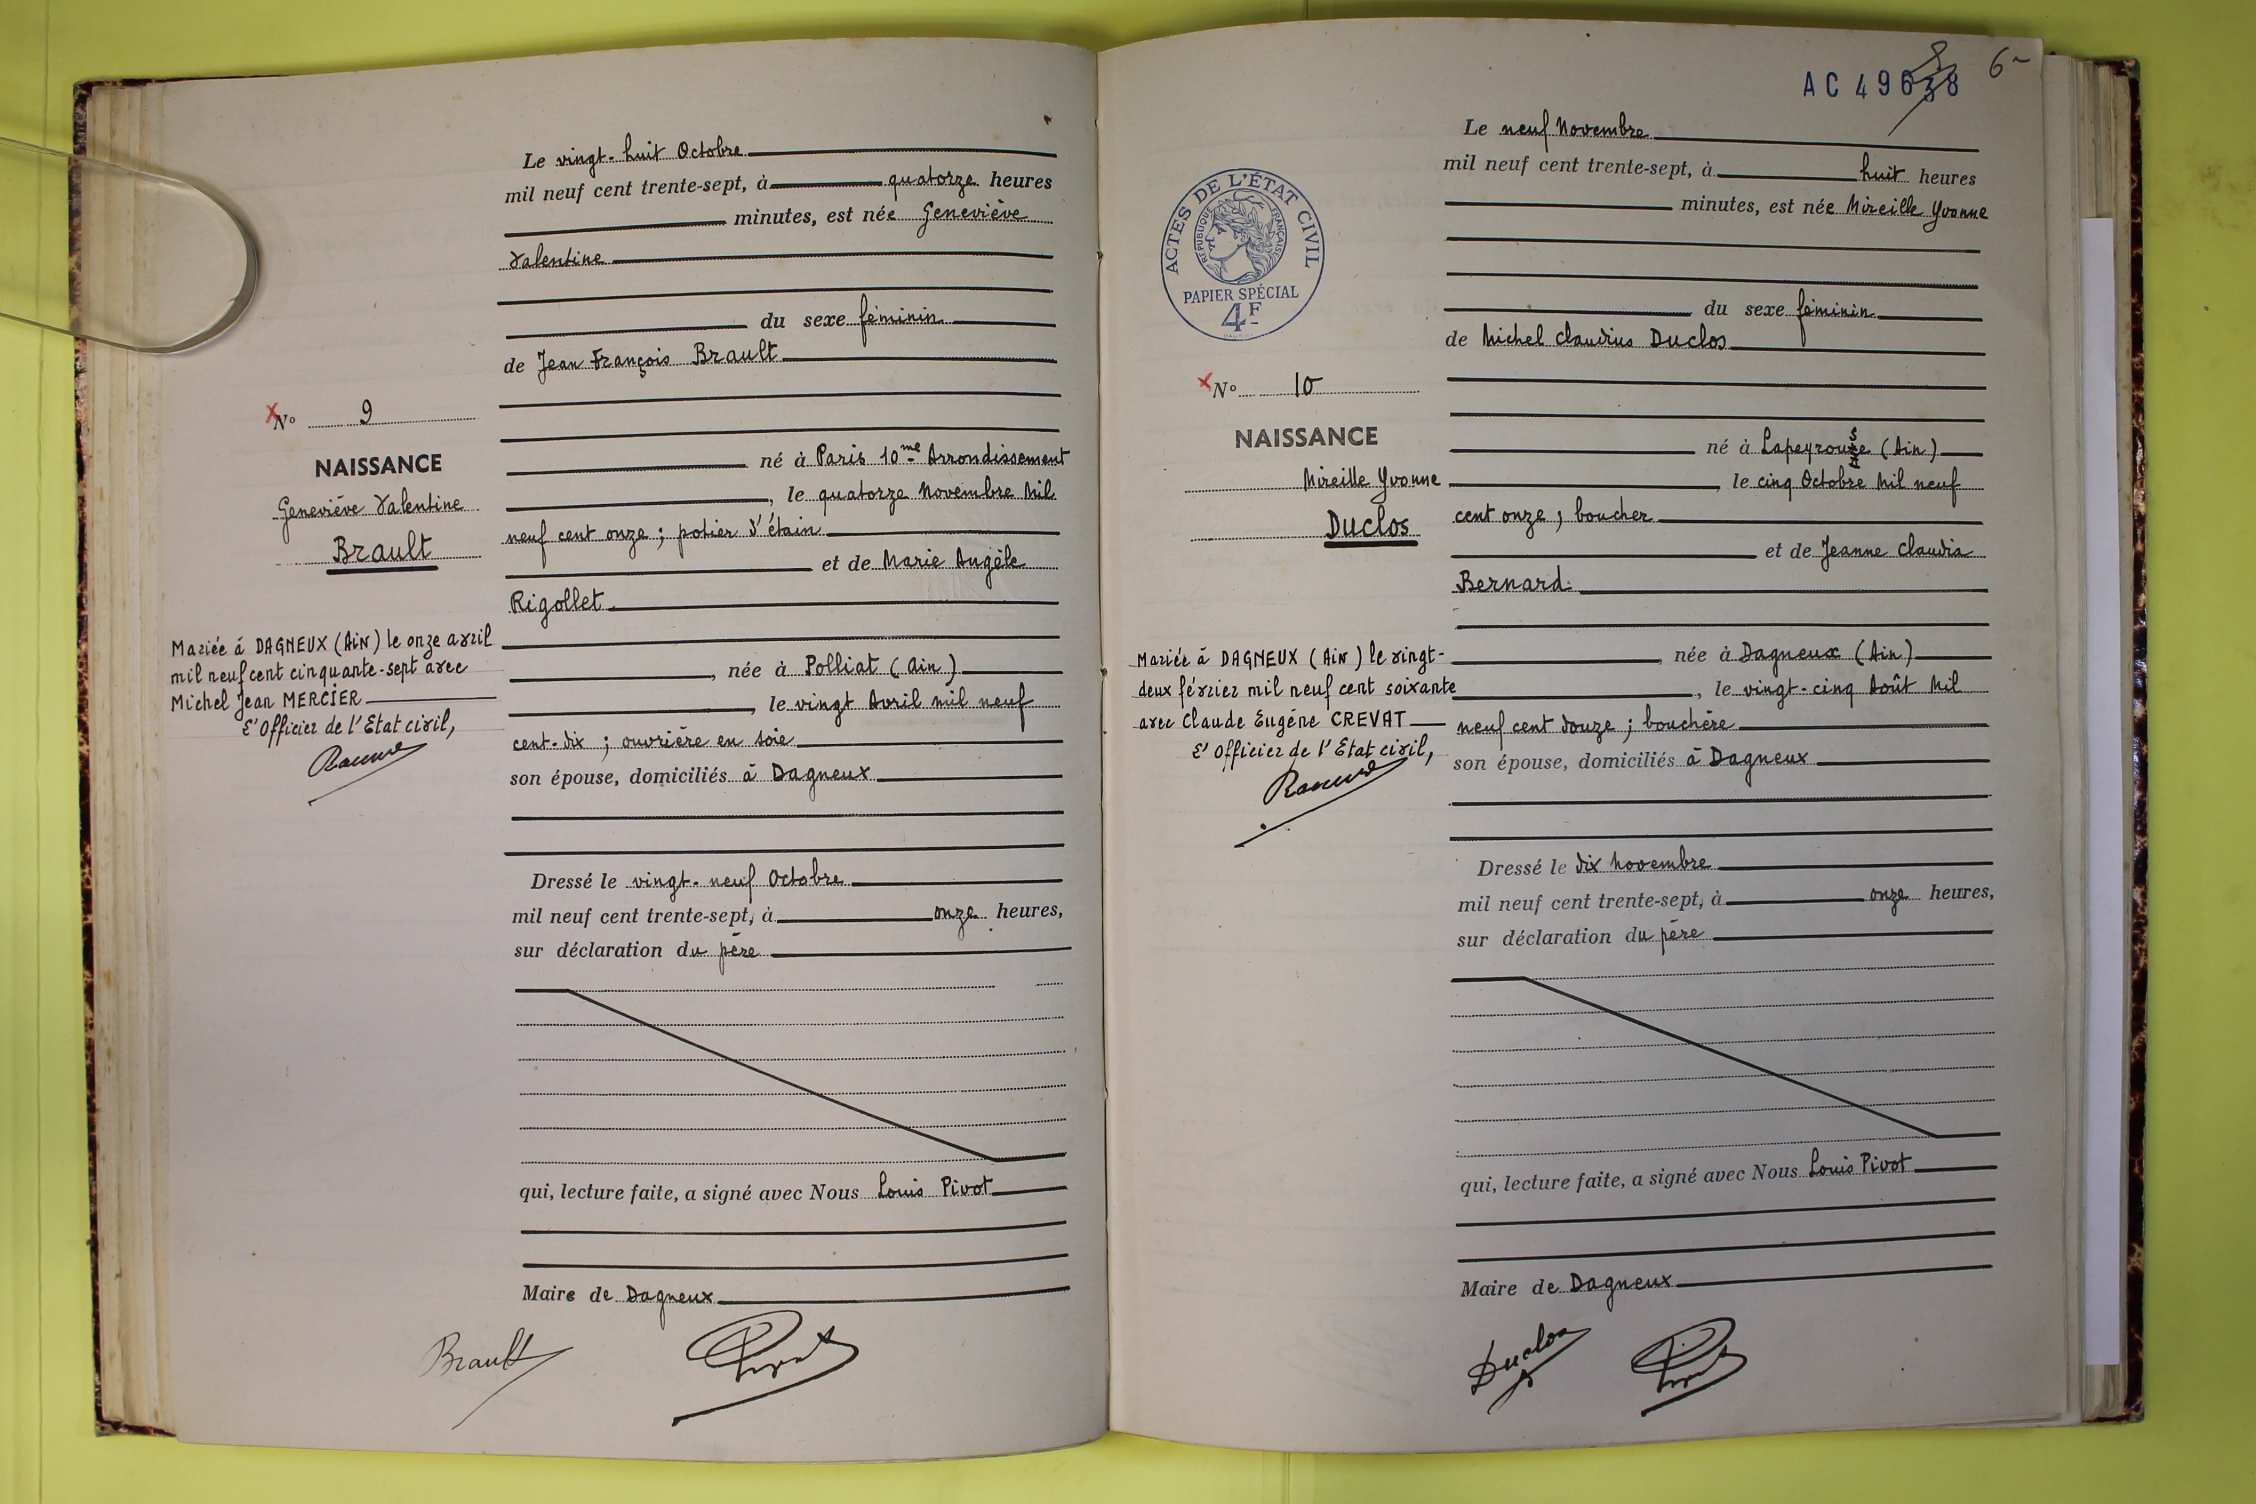 Le vingt-huit Octobre
mil neuf cent trente-sept, à quatorze heures
minutes, est née Geneviève
Valentine
du sexe féminin
de Jean François Brault
né à Paris 10me Arrondissement
, le quatorze Novembre Mil
neuf cent onze ; potier d'étain
et de Marie Angèle
Rigollet
, née à Polliat (Ain)
, le vingt Avril mil neuf
cent-dix ; ouvrière en soie
son épouse, domiciliés à Dagneux
Dressé le vingt-neuf Octobre
mil neuf cent trente-sept, à onze heures,
sur déclaration du père
qui, lecture faite, a signé avec Nous Louis Pivot
Maire de Dagneux
Brault
Pivot
No 9
NAISSANCE
Geneviève Valentine
Brault
Mariée à DAGNEUX (AiN) le onze avril
mil neuf cent cinquante-sept avec
Michel Jean MERCIER
L'Officier de l'Etat civil,
6
AC 49638
ACTES DE L'ÉTAT CIVIL
RÉPUBLIQUE FRANÇAISE
PAPIER SPÉCIAL
4F
Le neuf Novembre
mil neuf cent trente-sept, à huit heures
minutes, est née Mireille Yvonne
du sexe féminin
de Michel Claudius Duclos
né à Lapeyrouse (Ain)
, le cinq Octobre Mil neuf
cent onze ; boucher
et de Jeanne Claudia
Bernard
, née à Dagneux (Ain)
, le vingt-cinq Août Mil
neuf cent douze ; bouchère
son épouse, domiciliés à Dagneux
Dressé le dix Novembre
mil neuf cent trente-sept, à onze heures,
sur déclaration du père
qui, lecture faite, a signé avec Nous Louis Pivot
Maire de Dagneux
Duclos
Pivot
No 10
NAISSANCE
Mireille Yvonne
Duclos
Mariée à DAGNEUX (AiN) le vingt-
deux février mil neuf cent soixante
avec Claude Eugène CREVAT
L'Officier de l'Etat civil,